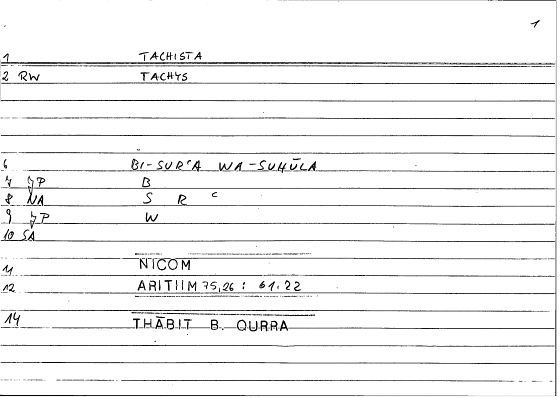 1
1 TACHISTA
2 RW TACHYS
6 BI-SURʿA WA-SUHŪLA
7 JP B
8 NA S R ʿ
9 JP W
10 SA
11 NICOM
12 ARITIIM 75,26 : 61.22
14 THĀBIT B. QURRA